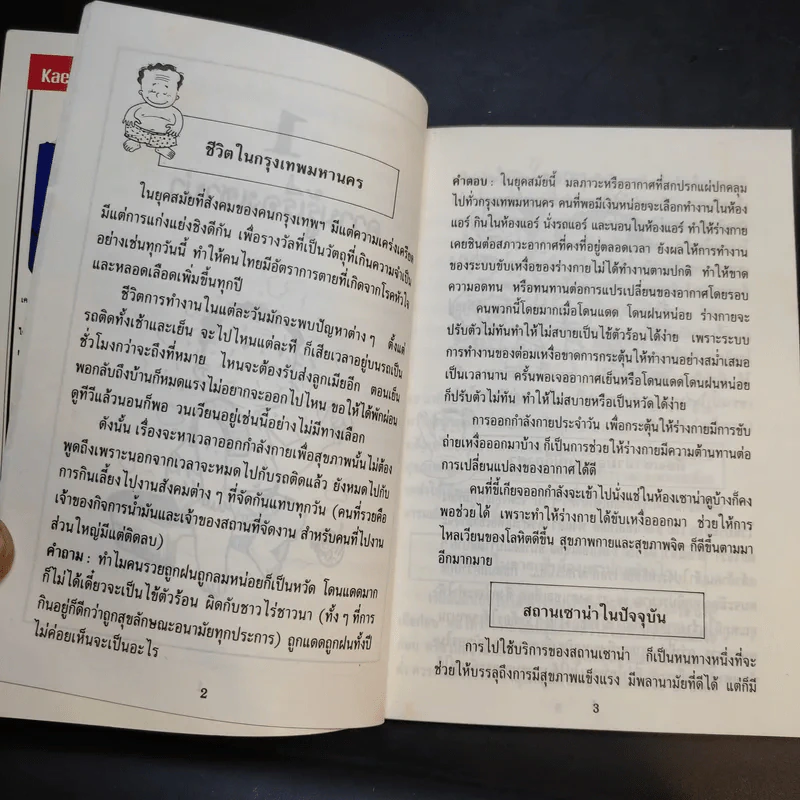 Kae
ชีวิตในกรุงเทพมหานคร
ในยุคสมัยที่สังคมของคนกรุงเทพฯ มีแต่ความเคร่งเครียด
มีแต่การแก่งแย่งชิงดีกัน เพื่อรางวัลที่เป็นวัตถุที่เกินความจำเป็น
อย่างเช่นทุกวันนี้ ทำให้คนไทยมีอัตราการตายที่เกิดจากโรคหัวใจ
และหลอดเลือดเพิ่มขึ้นทุกปี
ชีวิตการทำงานในแต่ละวันมักจะพบปัญหาต่างๆ ตั้งแต่
รถติดทั้งเช้าและเย็น จะไปไหนแต่ละที ก็เสียเวลาอยู่บนรถเป็น
ชั่วโมงกว่าจะถึงที่หมาย ไหนจะต้องรับส่งลูกเมียอีก ตอนเย็น
พอกลับถึงบ้านก็หมดแรงไม่อยากจะออกไปไหน ขอให้ได้พักผ่อน
ดูทีวีแล้วนอนก็พอ วนเวียนอยู่เช่นนี้อย่างไม่มีทางเลือก
ดังนั้น เรื่องจะหาเวลาออกกำลังกายเพื่อสุขภาพนั้นไม่ต้อง
พูดถึงเพราะนอกจากเวลาจะหมดไปกับรถติดแล้ว ยังหมดไปกับ
การกินเลี้ยงไปงานสังคมต่างๆ ที่จัดกันแทบทุกวัน (คนที่รวยคือ
เจ้าของกิจการน้ำมันและเจ้าของสถานที่จัดงาน สำหรับคนที่ไปงาน
ส่วนใหญ่มีแต่ติดลบ)
คำถาม : ทำไมคนรวยถูกฝนถูกลมหน่อยก็เป็นหวัด โดนแดดมาก
ก็ไม่ได้เดี๋ยวจะเป็นไข้ตัวร้อน ผิดกับชาวไร่ชาวนา (ทั้งๆ ที่การ
กินอยู่ก็ดีกว่าถูกสุขลักษณะอนามัยทุกประการ) ถูกแดดถูกฝนทั้งปี
ไม่ค่อยเห็นจะเป็นอะไร
2
คำตอบ : ในยุคสมัยนี้ มลภาวะหรืออากาศที่สกปรกแผ่ปกคลุม
ไปทั่วกรุงเทพมหานคร คนที่พอมีเงินหน่อยจะเลือกทำงานในห้อง
แอร์ กินในห้องแอร์ นั่งรถแอร์ และนอนในห้องแอร์ ทำให้ร่างกาย
เคยชินต่อสภาวะอากาศที่คงที่อยู่ตลอดเวลา ยังผลให้การทำงาน
ของระบบขับเหงื่อของร่างกายไม่ได้ทำงานตามปกติ ทำให้ขาด
ความอดทน หรือทนทานต่อการแปรเปลี่ยนของอากาศโดยรอบ
คนพวกนี้โดยมากเมื่อโดนแดด โดนฝนหน่อย ร่างกายจะ
ปรับตัวไม่ทันทำให้ไม่สบายเป็นไข้ตัวร้อนได้ง่าย เพราะระบบ
การทำงานของต่อมเหงื่อขาดการกระตุ้นให้ทำงานอย่างสม่ำเสมอ
เป็นเวลานาน ครั้นพอเจออากาศเย็นหรือโดนแดดโดนฝนหน่อย
ก็ปรับตัวไม่ทัน ทำให้ไม่สบายหรือเป็นหวัดได้ง่าย
การออกกำลังกายประจำวัน เพื่อกระตุ้นให้ร่างกายมีการขับ
ถ่ายเหงื่อออกมาบ้าง ก็เป็นการช่วยให้ร่างกายมีความต้านทานต่อ
การเปลี่ยนแปลงของอากาศได้ดี
คนที่ขี้เกียจออกกำลังจะเข้าไปนั่งแช่ในห้องเซาน่าดูบ้างก็คง
พอช่วยได้ เพราะทำให้ร่างกายได้ขับเหงื่อออกมา ช่วยให้การ
ไหลเวียนของโลหิตดีขึ้น สุขภาพกายและสุขภาพจิต ก็ดีขึ้นตามมา
อีกมากมาย
สถานเซาน่าในปัจจุบัน
การไปใช้บริการของสถานเซาน่า ก็เป็นหนทางหนึ่งที่จะ
ช่วยให้บรรลุถึงการมีสุขภาพแข็งแรง มีพลานามัยที่ดีได้ แต่ก็มี
3